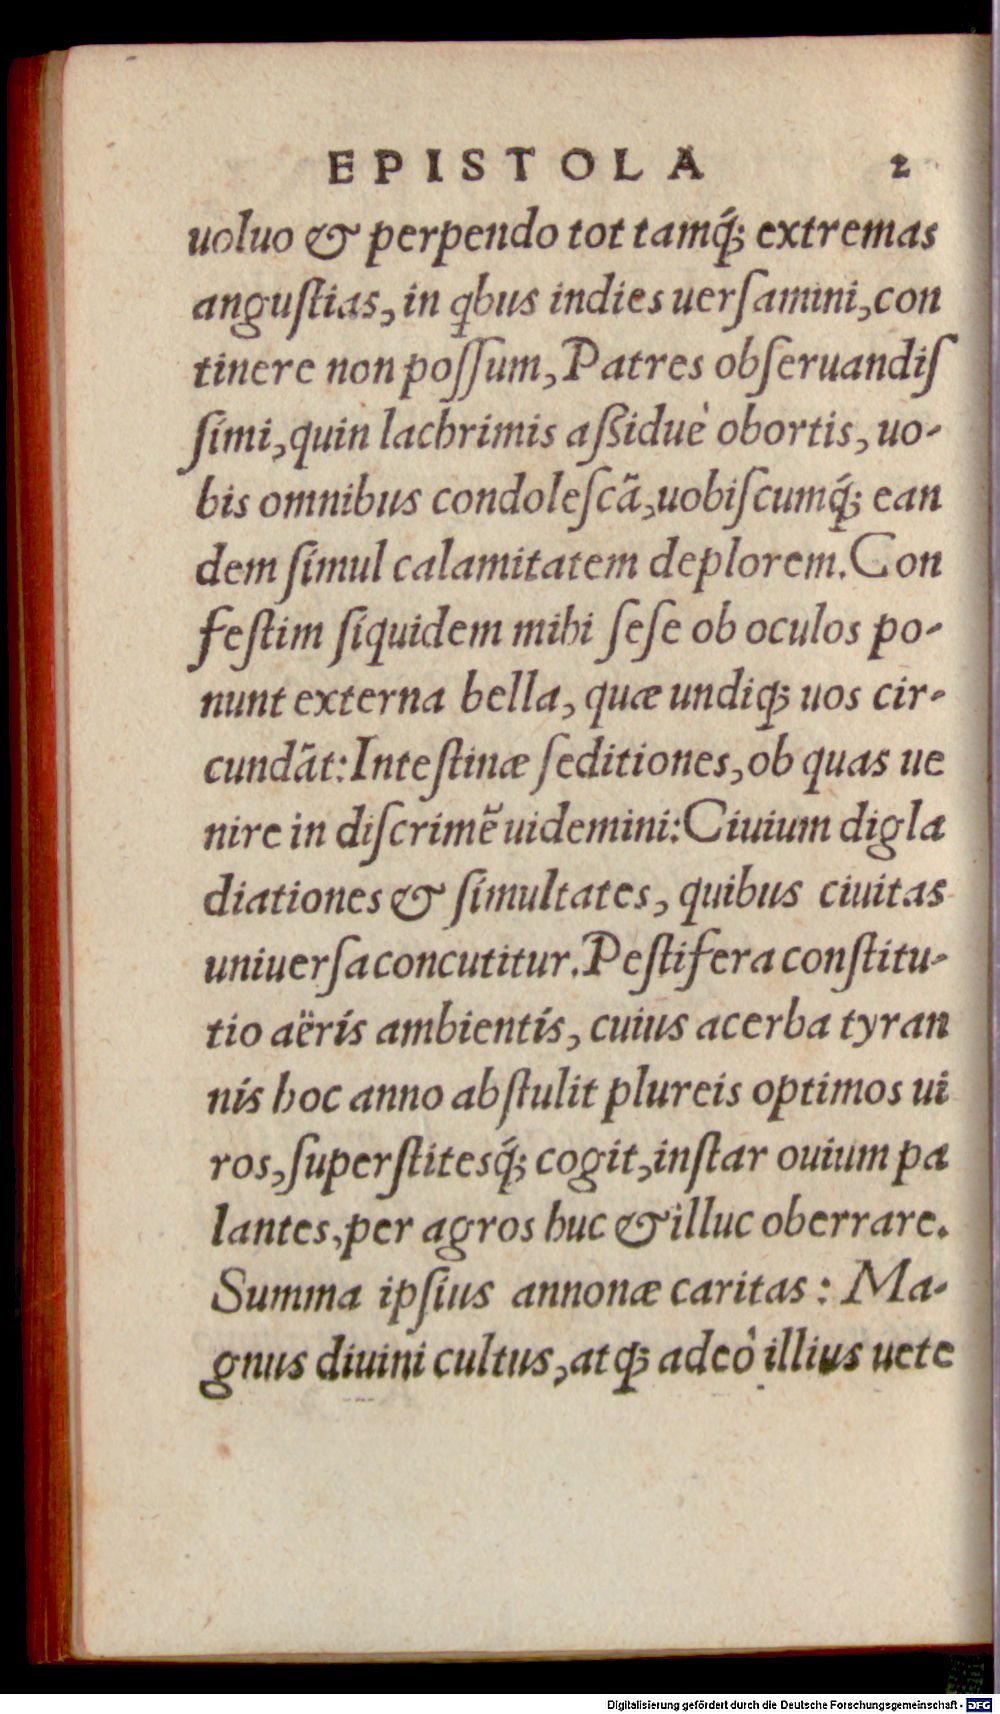 EPISTOLA 2
uoluo & perpendo tot tamq́ꝫ extremas
anguſtias, in qbus indies uerſamini, con
tinere non poſſum, Patres obſeruandiſ
ſimi, quin lachrimis aßiduè obortis, uo-
bis omnibus condoleſcã, uobiſcumq́ꝫ ean
dem ſimul calamitatem deplorem. Con
feſtim ſiquidem mihi ſeſe ob oculos po-
nunt externa bella, quæ undiqꝫ uos cir-
cundãt: Inteſtinæ ſeditiones, ob quas ue
nire in diſcrimẽ uidemini: Ciuium digla
diationes & ſimultates, quibus ciuitas
uniuerſa concutitur. Peſtifera conſtitu-
tio aëris ambientis, cuius acerba tyran
nis hoc anno abſtulit plureis optimos ui
ros, ſuperſtitesq́ꝫ cogit, inſtar ouium pa
lantes, per agros huc & illuc oberrare.
Summa ipſius annonæ caritas: Ma-
gnus diuini cultus, atqꝫ adeò illius uete
Digitalisierung gefördert durch die Deutsche Forschungsgemeinschaft - DFG